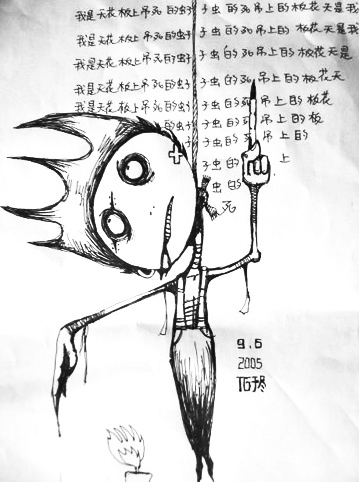 我是天花板上吊死的虫子 子虫的死吊上的板花天是我
我是天花板上吊死的虫子 子虫的死吊上的板花天是我
我是天花板上吊死的虫子 子虫的死吊上的板花天是
我是天花板上吊死的虫子 子虫的死吊上的板花天
我是天花板上吊死的虫子 子虫的死吊上的板花
的虫子 子虫的死吊上的板
子虫的死吊上的
子虫的 上
子虫的
死
9.6
2005